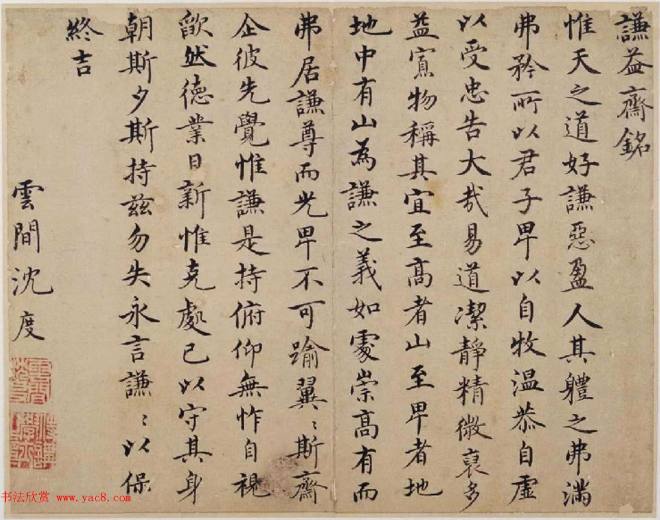 謙益齋銘
惟天之道好謙惡盈人其體之弗滿
弗矜所以君子卑以自牧溫恭自虛
以受忠告大哉易道潔靜精微裒多
益寡物稱其宜至高者山至卑者地
地中有山為謙之義如處崇高有而
弗居謙尊而光卑不可踰翼〻斯齋
企彼先覺惟謙是持俯仰無怍自視
歆然德業日新惟克處已以守其身
朝斯夕斯持茲勿失永言謙〻以保
終吉
雲間沈度
书法欣赏
www.yac8.com